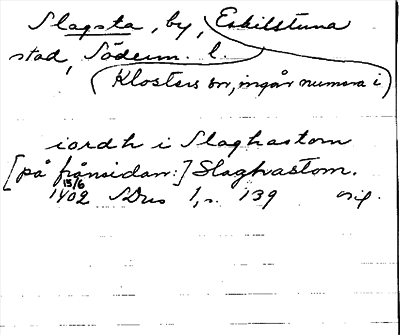 Slagsta, by, Eskilstuna
stad, Söderm. l.
(Klosters sn, ingår numera i)
iordh i Slaghastom
[på frånsidan:] Slaghvastom.
15/6
1402 SDns 1, s. 139 orig.